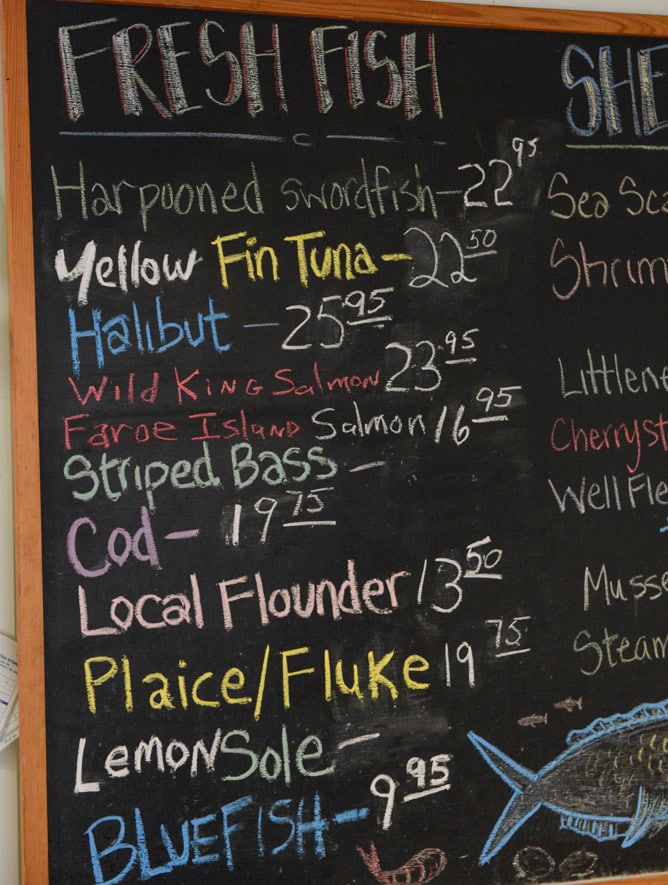 FRESH FISH
Harpooned swordfish - 22 95
Yellow Fin Tuna - 22 50
Halibut - 25 95
Wild King Salmon 23 95
Faroe Island Salmon 16 95
Striped Bass -
Cod - 19 75
Local Flounder 13 50
Plaice/Fluke 19 75
Lemon Sole -
BLUEFISH - 9 95
SHE
Sea Sca
Shrim
Littlene
Cherryst
Well Fle
Musse
Steam